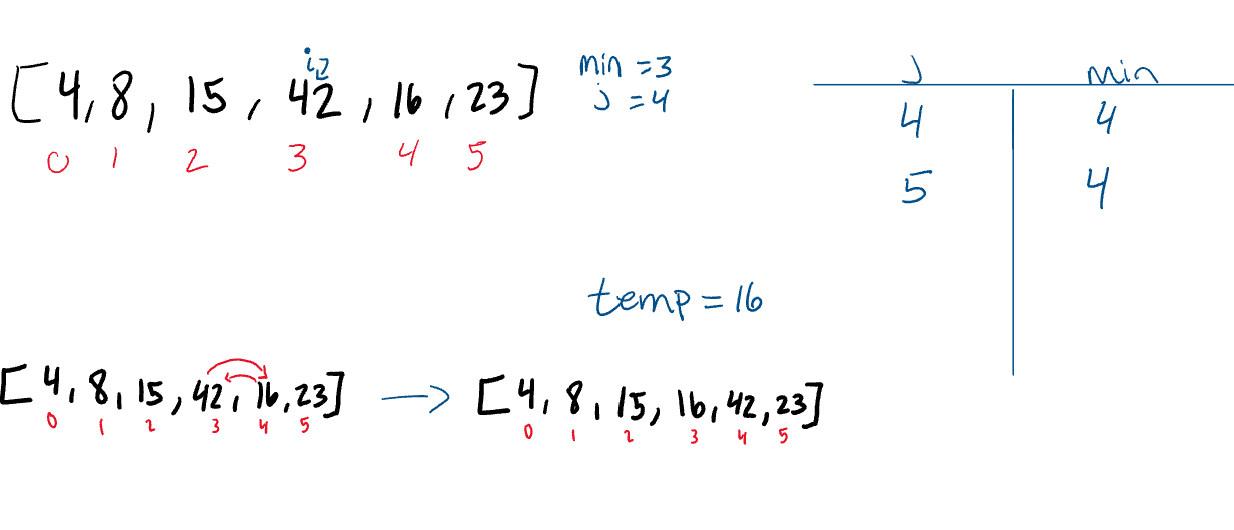 i
[4, 8, 15, 42, 16, 23]
0 1 2 3 4 5
min = 3
j = 4
j min
4 4
5 4
temp = 16
[4, 8, 15, 42, 16, 23] → [4, 8, 15, 16, 42, 23]
0 1 2 3 4 5 0 1 2 3 4 5